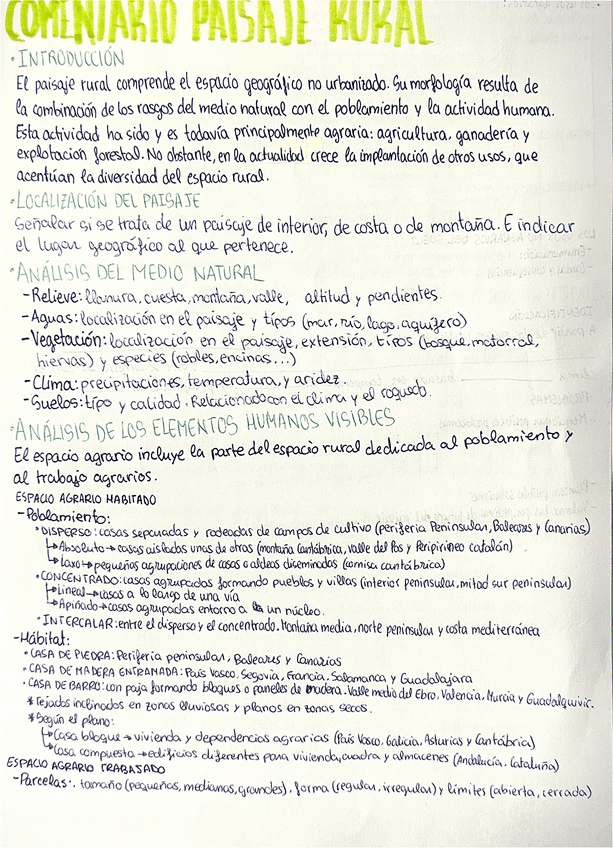 COMENTARIO PAISAJE RURAL
· INTRODUCCIÓN
El paisaje rural comprende el espacio geográfico no urbanizado. Su morfología resulta de
la combinación de los rasgos del medio natural con el poblamiento y la actividad humana.
Esta actividad ha sido y es todavía principalmente agraria: agricultura, ganadería y
explotación forestal. No obstante, en la actualidad crece la implantación de otros usos, que
acentúan la diversidad del espacio rural.
· LOCALIZACIÓN DEL PAISAJE
Señalar si se trata de un paisaje de interior, de costa o de montaña. E indicar
el lugar geográfico al que pertenece.
· ANÁLISIS DEL MEDIO NATURAL
- Relieve: llanura, cuesta, montaña, valle, altitud y pendientes.
- Aguas: localización en el paisaje y tipos (mar, río, lago, aquífero)
- Vegetación: localización en el paisaje, extensión, tipos (bosque, matorral,
hiervas) y especies (robles, encinas,...)
- Clima: precipitaciones, temperatura, y aridez.
- Suelos: tipo y calidad. Relacionado con el clima y el roquedo.
· ANÁLISIS DE LOS ELEMENTOS HUMANOS VISIBLES
El espacio agrario incluye la parte del espacio rural dedicada al poblamiento y
al trabajo agrarios.
ESPACIO AGRARIO HABITADO
- Poblamiento:
· DISPERSO: casas separadas y rodeadas de campos de cultivo (periferia Peninsular, Baleares y Canarias)
↳ Absoluto → casas aisladas unas de otras (montaña Cantábrica, valle del Pas y Peripirineo catalán)
↳ Laxo → pequeñas agrupaciones de casas o aldeas diseminadas (cornisa cantábrica)
· CONCENTRADO: casas agrupadas formando pueblos y villas (interior peninsular, mitad sur peninsular)
↳ Lineal → casas a lo largo de una vía
↳ Apiñado → casas agrupadas entorno a un núcleo.
· INTERCALAR: entre el disperso y el concentrado. Montaña media, norte peninsular y costa mediterránea
- Hábitat:
· CASA DE PIEDRA: Periferia peninsular, Baleares y Canarias
· CASA DE MADERA ENTRAMADA: País Vasco, Segovia, Francia, Salamanca y Guadalajara
· CASA DE BARRO: con paja formando bloques o paneles de madera. Valle medio del Ebro, Valencia, Murcia y Guadalquivir.
* Tejados inclinados en zonas lluviosas y planos en zonas secas.
* Según el plano:
↳ Casa bloque → vivienda y dependencias agrarias (País Vasco, Galicia, Asturias y Cantábria)
↳ Casa compuesta → edificios diferentes para vivienda, cuadra y almacenes (Andalucía, Cataluña)
ESPACIO AGRARIO TRABAJADO
- Parcelas: tamaño (pequeñas, medianas, grandes), forma (regular, irregular) y límites (abierta, cerrada)